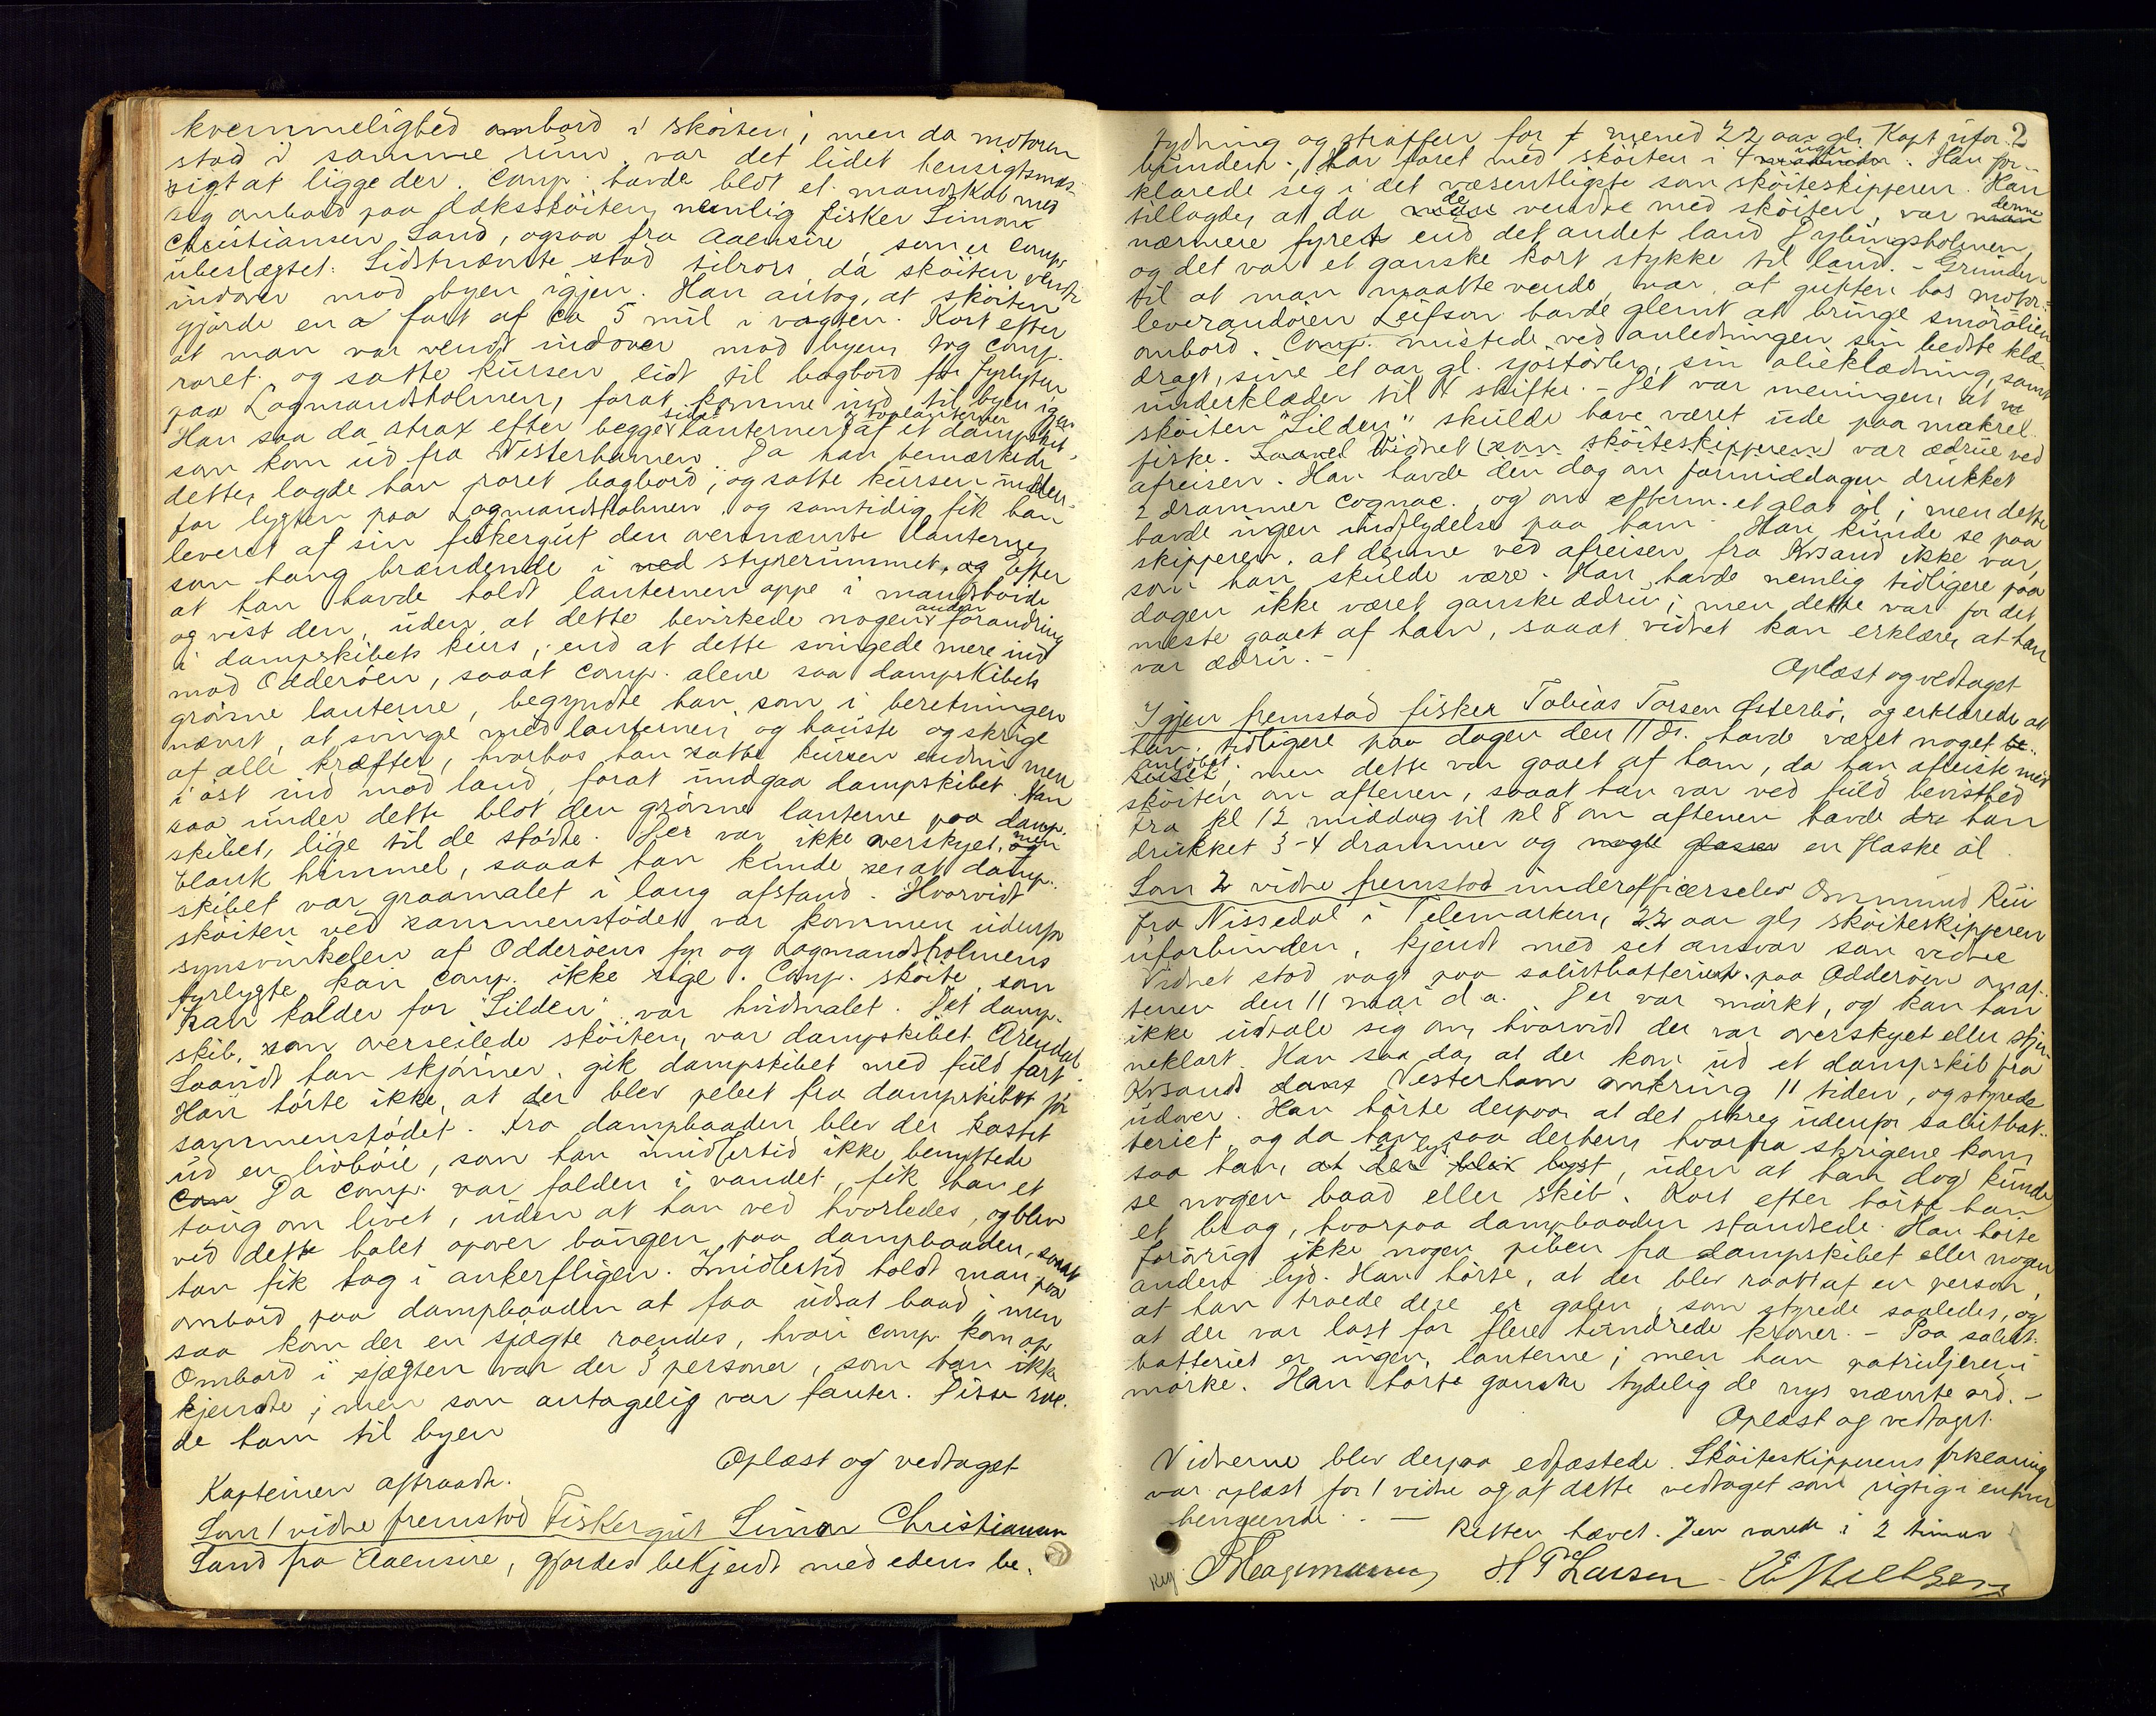 kvemmelighed ombord i skøiten; men da motoren
stod i samme rum, var det lidet hensigtsmæs-
sigt at ligge der. Comp. havde blot et mandskab med
sig ombord paa dæksskøiten, nemlig fisker Simon
Christiansen Sand, ogsaa fra Aaensire, som er comp.
ubeslægtet. Sidstnævnte stod tilrors, da skøiten vendte
indover mod byen igjen. Han antog, at skøiten
gjorde en a fart af ca 5 mil i vagten. Kort efter
at man var vendt indover mod byen, tog comp.
roret og satte kursen lidt til bagbord for fyrlygten
paa Lagmandsholmen, forat komme ind til byen igjen
Han saa da strax efter begge side lanterner og toplanternen af et dampskib,
som kom ud fra Vesterhavnen. Da han bemærkede
dette, lagde han roret bagbord, og satte kursen inden-
for lygten paa Lagmandsholmen, og samtidig fik han
leveret af sin fiskergut den overnævnte lanterne,
som hang brændende i ved styrerummet, og Efter
at han havde holdt lanternen oppe i mandshøide
og vist den, uden at dette bevirkede nogen anden forandring
i dampskibets kurs, end at dette svingede mere ind
mod Odderøen, saaat comp. alene saa dampskibets
grønne lanterne, begyndte han, som i beretningen
nævnt, at svinge med lanternen og hauste og skrige
af alle kræfter, hvorhos han satte kursen endnu mer
i øst ind mod land, forat undgaa dampskibet. Han
saa under dette blot den grønne lanterne paa damp-
skibet, lige til de stødte. Der var ikke overskyet, og men
blank himmel, saaat han kunde se, at damp-
skibet var graamalet i lang afstand. Hvorvidt
skøiten ved sammenstødet var kommen udenfor
synsvinkelen af Odderøens fyr og Lagmandsholmens
fyrlygte, kan comp. ikke sige. Comp. skøite, som
han kalder for "Silden", var hvidmalet. Det damp-
skib, som overseilede skøiten, var dampskibet Arendal.
Saavidt han skjønner, gik dampskibet med fuld fart.
Han hørte ikke, at der blev pebet fra dampskibet før
sammenstødet. Fra dampbaaden blev der kastet
ud en livbøie, som han imidlertid ikke benyttede
Com Da comp. var falden i vandet, fik han et
taug om livet, uden at han ved hvorledes, og blev
ved dette halet opover baugen paa dampbaaden, saaat
han fik tag i ankerfligen. Imidlertid holdt man paa
ombord paa dampbaaden at faa udsat baad; men
saa kom der en sjægte roendes, hvori comp. kom op
Ombord i sjægten var der 3 personer, som han ikke
kjendte; men som antagelig var fanter. Disse roe-
de ham til byen
Oplæst og vedtaget
Kapteinen aftraadte.
Som 1 vidne fremstod Fiskergut Simon Christiansen
Sand fra Aaensire, gjordes bekjendt med edens be-
2
tydning og straffen for mened 22 aar gl. Kapt. ufor-
bunden. Har faret med skøiten i 4 maaneder uger. Han for-
klarede seg i det væsentligste som skøiteskipperen. Han
tillagde, at da de vendte med skøiten, var man denne
nærmere fyret end det andet land Dybingsholmen,
og det var et ganske kort stykke til land. - Grunden
til at man maatte vende, var, at gutten hos motor-
leverandøren Leifson havde glemt at bringe smørolien
ombord. Comp. mistede ved anledningen sin bedste klæ-
dragt, sine et aar gl. sjøstøvler, sin olieklædning, samt
underklæder til 4 skifte. - Det var meningen, at
skøiten "Silden" skulde have været ude paa makrel-
fiske. Saavel Vidnet (som skøiteskipperen) var ædrue ved
afreisen. Han havde den dag om formiddagen drukket
2 drammer cognac, og om efterm. et glas øl; men dette
havde ingen indflydelse paa ham. Han kunde se paa
skipperen, at denne ved afreisen fra Krsand ikke var,
som han skulde være. Han havde nemlig tidligere paa
dagen ikke været ganske ædru; men dette var for det
meste gaaet af ham, saaat vidnet kan erklære, at han
var ædru. -
Oplæst og vedtaget
Igjen fremstod fisker Tobias Torsen Østerbø, og erklærede at
han tidligere paa dagen den 11 ds. havde været noget be-
ruset; men dette var gaaet af ham, da han afreiste med
skøiten om aftenen, saaat han var ved fuld bevisthed
Fra kl 12 middag til kl 8 om aftenen havde han
drukket 3-4 drammer og nogle glasser en flaske øl.
Som 2 vidne fremstod underofficerselev Ommund Rui
fra Nissedal i Telemarken, 22 aar gl, skøiteskipperen
uforbunden, kjendt med set ansvar som vidne
Vidnet stod vagt paa salutbatteriet paa Odderøen om af-
tenen den 11 mai d a. Der var mørkt, og kan han
ikke udtale sig om, hvorvidt der var overskyet eller stjer-
neklart. Han saa da, at der kom ud et dampskib fra
Krsands Vesterhavn omkring 11 tiden, og styrede
udover. Han hørte derpaa at det skreg udenfor salutbat-
teriet, og da han saa derhen, hvorfra skrigene kom,
saa han, at der blev lyst et lys, uden at han dog kunde
se nogen baad eller skib. Kort efter hørte han
et brag, hvorpaa dampbaaden standsede. Han hørte
forøvrigt ikke nogen piben fra dampskibet eller nogen
anden lyd. Han hørte, at der blev raabt af en person,
at han troede dere er galen, som styrede saaledes, og
at der var last for flere hundrede kroner. - Paa salut-
batteriet er ingen lanterne; men han patruljerer i
mørke. Han hørte ganske tydelig de nys nævnte ord. -
Oplæst og vedtaget.
Vidnerne blev derpaa edfæstede. Skøiteskipperens forklaring
var oplæst for 1 vidne og af dette vedtaget som rigtig i enhver
henseende. - Retten hævet. Den varede i 2 timer
H. P. Larsen